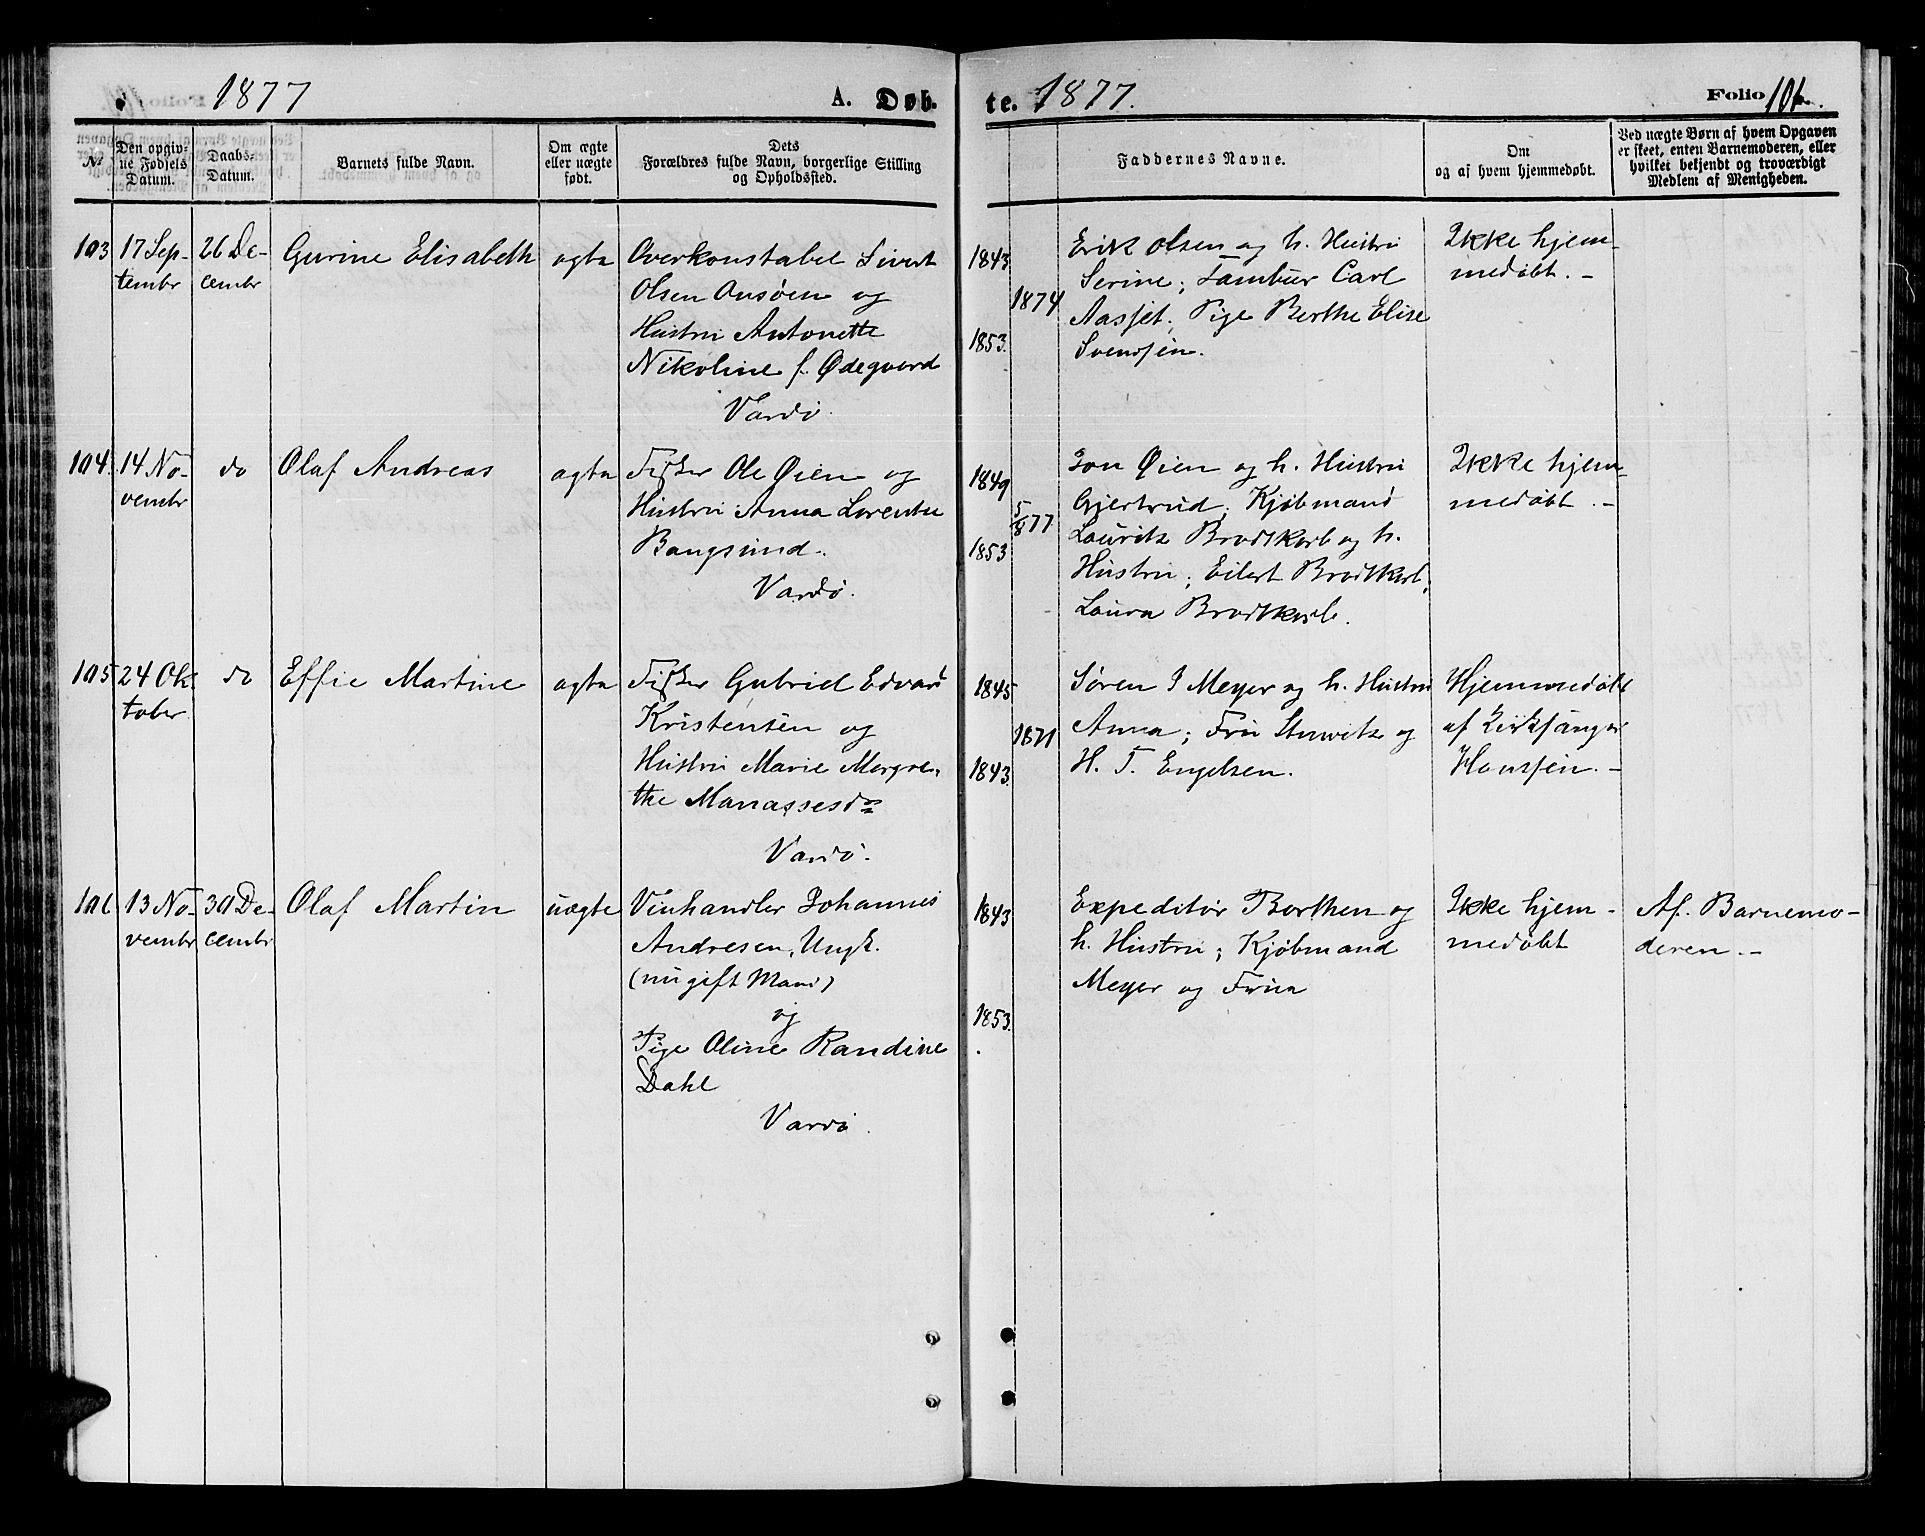 1877
A. Døb-
te. 1877.
Folio 106.
№
Den opgiv-
ne Fødsels
Datum.
Daabs-
Datum.
Barnets fulde Navn.
Om ægte
eller uægte
født.
Dets
Forældres fulde Navn, borgerlige Stilling
og Opholdssted.
Faddernes Navne.
Om
og af hvem hjemmedøbt.
Ved uægte Børn af hvem Opgaven
er skeet, enten Barnemoderen, eller
hvilket bekjendt og troværdigt
Medlem af Menigheden.
103
17 Sep-
tembr
26 De-
cembr
Gurine Elisabeth
ægte
Overkonstabel Sivert
Olsen og
Hustru Antonette
Nikoline f. Ødegaard
Vardø.
1843
1874
1853.
Erik Olsen og h. Hustru
Serine; Tambur Carl
Aasjet; Pige Berthe Elise
Svendsen.
Ikke hjem-
medøbt. -
104
14 No-
vembr
do
Olaf Andreas
ægte
Fisker Ole Øien og
Hustru Anna Lorentse
Bangsund.
Vardø.
1849
5/8 77
1853
Jon Øien og h. Hustru
Gjertrud; Kjøbmand
Lauritz Brodtkorb og h.
Hustru; Eilert Brodtkorb;
Laura Brodtkorb.
Ikke hjem-
medøbt. -
105
24 Ok-
tober
do
Effie Martine
ægte
Fisker Gabriel Edvard
Kristensen og
Hustru Marie Margre-
the Manassesdr
Vardø.
1845
1871
1843.
Søren J Meyer og h. Hustru
Anna; Fru Stuwitz og
H. T. Engelsen.
Hjemmedøbt
af Kirksanger
Hanssen. -
106
13 No-
vembr
30 De-
cembr
Olaf Martin
uægte
Vinhandler Johannes
Andresen, Ungk.
(nu gift Mand)
og
Pige Oline Randine
Dahl
Vardø.
1843
1853.
Expeditør Borthen og
h. Hustru; Kjøbmand
Meyer og Frue
Ikke hjem-
medøbt
Af Barnemo-
deren. -